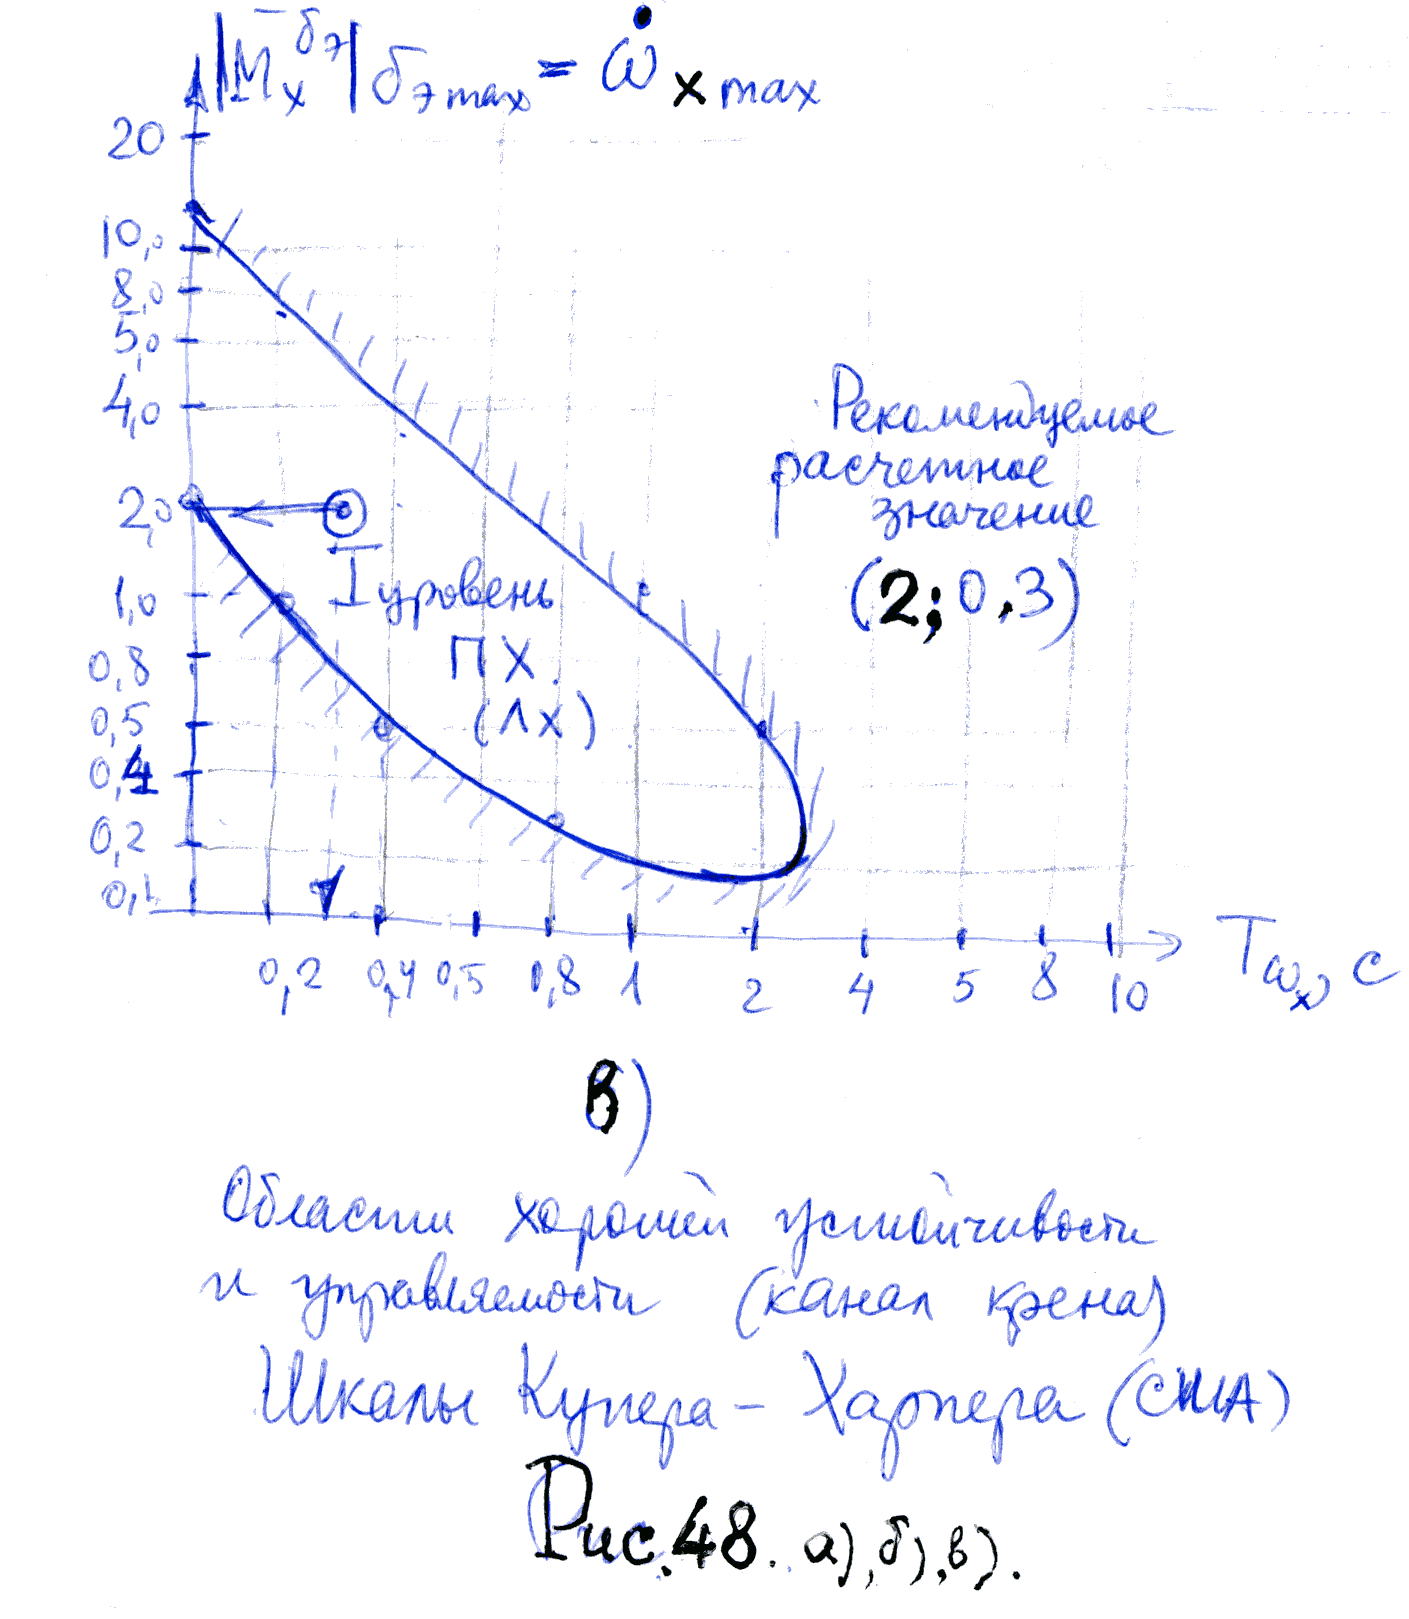 |M̄ₓ^δэ| δэ max = ω̇ₓ max
20
10,0
8,0
5,0
4,0
2,0
1,0
0,8
0,5
0,4
0,2
0,1
Рекомендуемое
расчетное
значение
(2; 0.3)
I уровень
ПХ.
(ЛХ)
0,2 0,4 0,5 0,8 1 2 4 5 8 10
Tωₓ, с
в)
Области хорошей устойчивости
и управляемости (канал крена)
Шкалы Купера – Харпера (США)
Рис. 48. а), б), в).